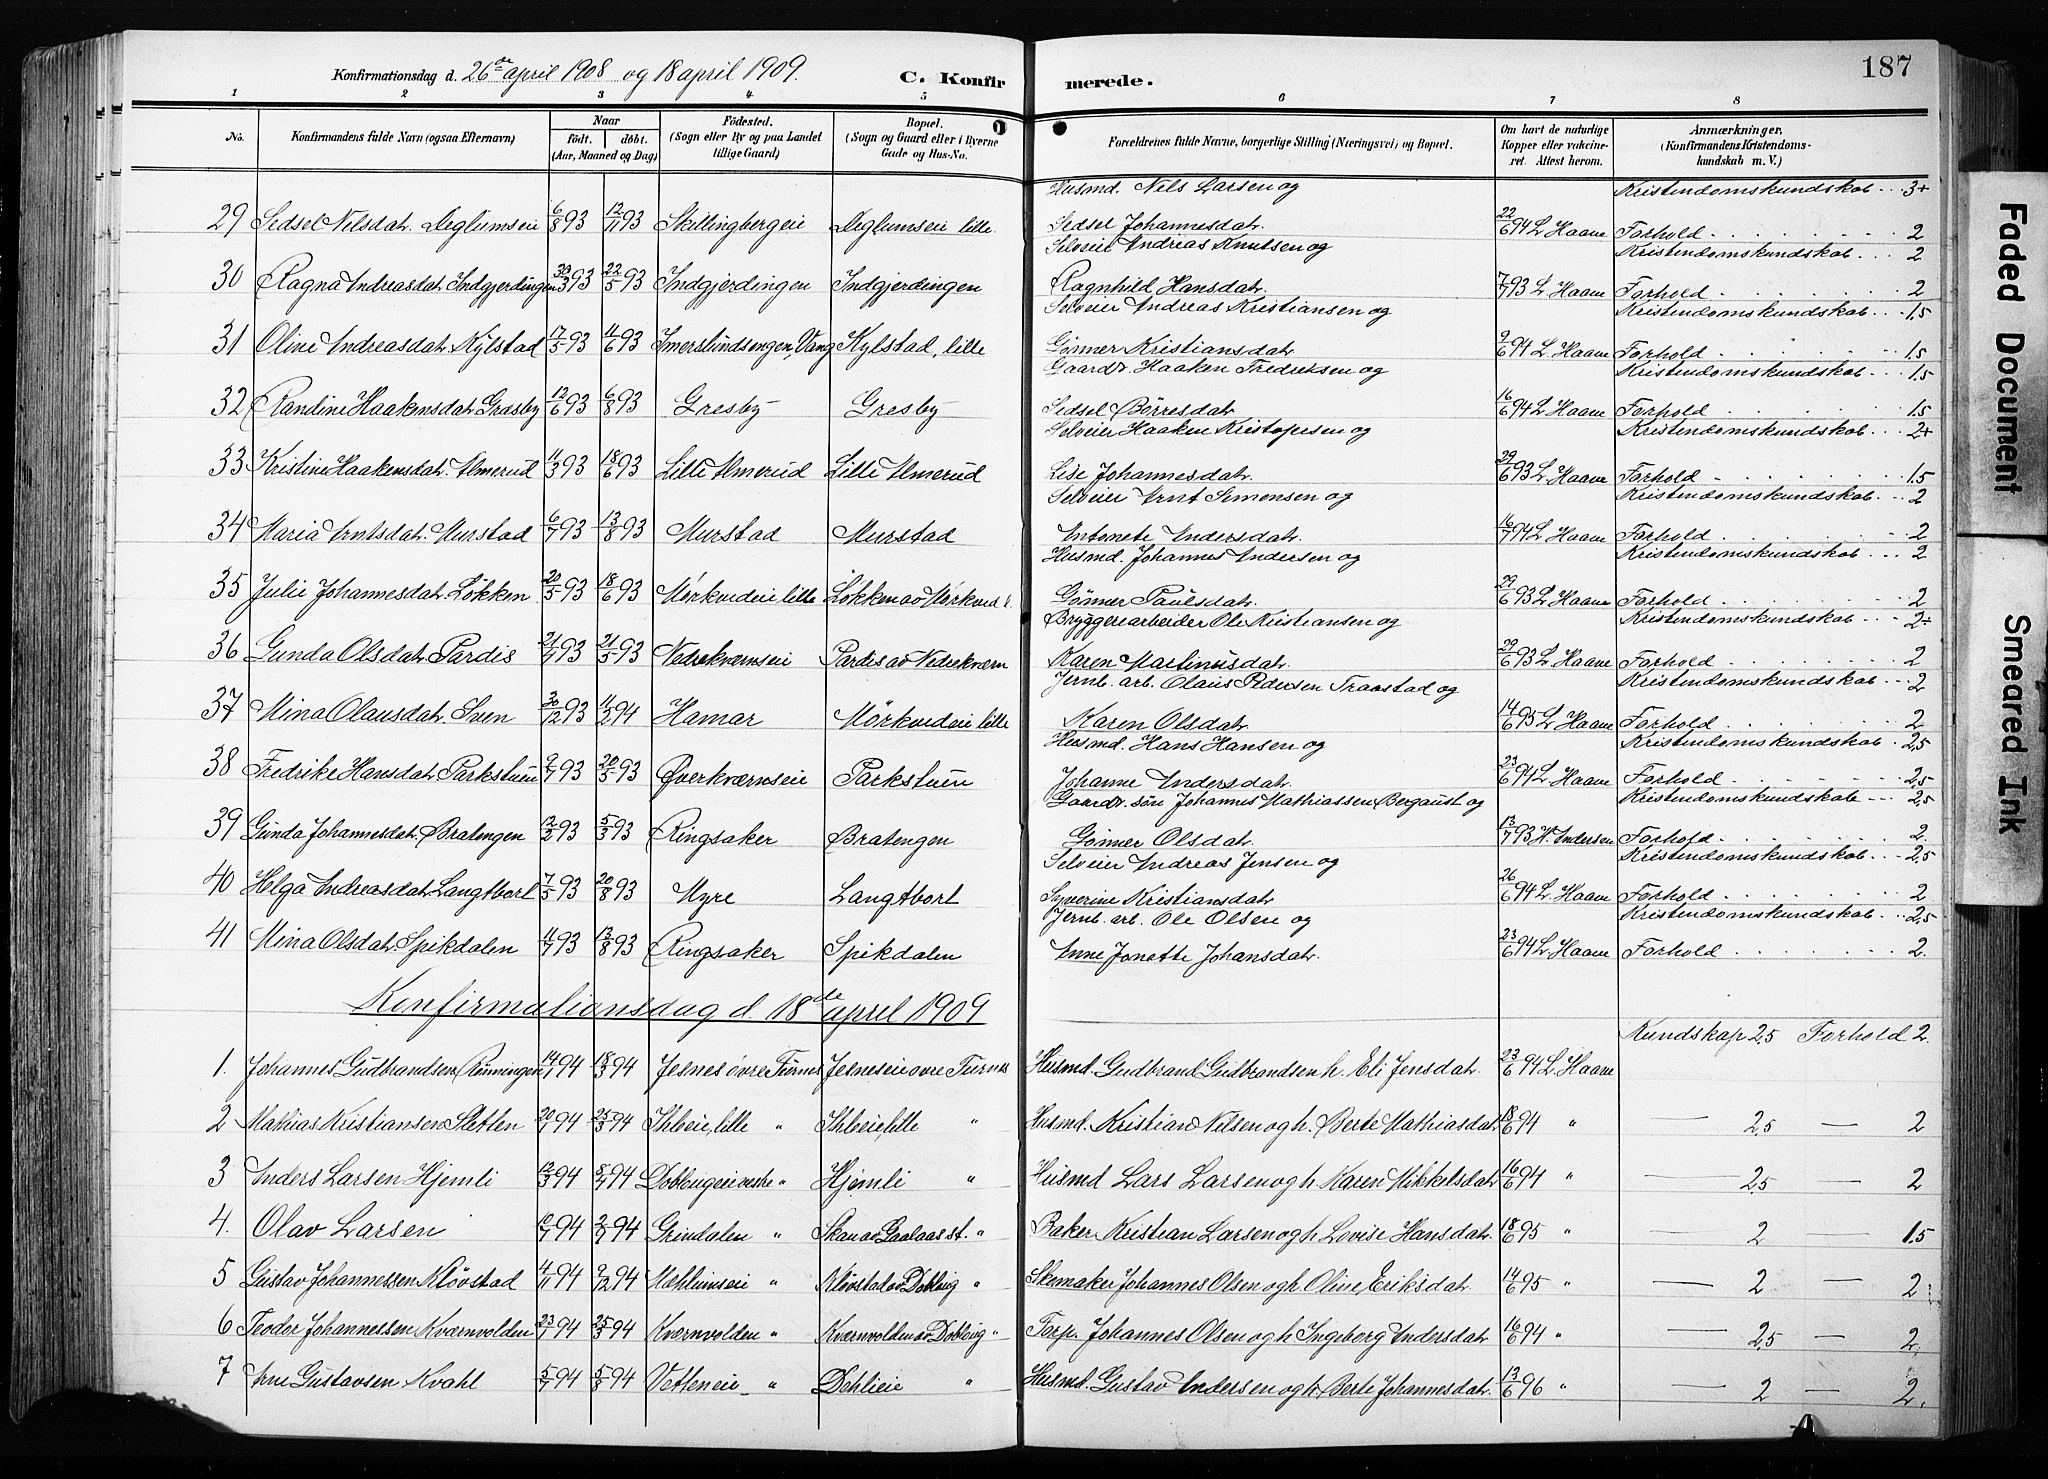 Konfirmationsdag d. 26de april 1908 og 18 april 1909. C. Konfir merede. 187
1 2 3 4 5 6 7 8
No. Konfirmandens fulde Navn (ogsaa Efternavn) Naar født. døbt. (Aar, Maaned og Dag) Fødested. (Sogn eller By og paa Landet tillige Gaard) Bopæl. (Sogn og Gaard eller i Byerne Gade og Hus-No. Forældrenes fulde Navne, borgerlige Stilling (Næringsvei) og Bopæl. Om havt de naturlige Kopper eller vakcineret. Attest herom. Anmærkninger. (Konfirmandens Kristendomskundskab m. V.)
Husmd. Nels Larsen og Kristendomskundskab 3+
29 Sedsel Nelsdat. Deglumseie 6/8 93 12/11 93 Skillingbergeie Deglumseie lille. Sedsel Johannesdat. 22/6 94 L. Haave Forhold 2
Selveier Andreas Knutsen og Kristendomskundskab 2
30 Ragna Andreasdat. Indgjerdingen 30/3 93 22/5 93 Indgjerdingen Indgjerdingen Ragnhild Hansdat. 7/7 93 L. Haave Forhold 2
Selveier Andreas Kristiansen og Kristendomskundskab 1.5
31 Oline Andreasdat. Kylstad 17/5 93 11/6 93 Imerslundsengen, Vang Kylstad, lille Gønner Kristiansdat. 9/6 94 L. Haave Forhold 1.5
Gaardr. Haaken Fredriksen og Kristendomskundskab 1.5
32 Randine Haakensdat. Gresby 12/6 93 6/8 93 Gresby Gresby Sedsel Børresdat. 16/6 94 L. Haave Forhold 1.5
Selveier Haaken Kristofersen og Kristendomskundskab 2+
33 Kristine Haakensdat. Almerud 11/3 93 18/6 93 Lille Almerud Lille Almerud Lise Johannesdat. 29/6 93 L. Haave Forhold 1.5
Selveier Arnt Simensen og Kristendomskundskab 2
34 Maria Arntsdat. Murstad 6/7 93 13/8 93 Murstad Murstad Antonete Andersdat. 16/7 94 L. Haave Forhold 2
Husmd. Johannes Andersen og Kristendomskundskab 2
35 Julie Johannesdat. Løkken 20/5 93 18/6 93 Mørkvedeie lille Løkken av Mørkved l. Gønner Paulsdat. 29/6 93 L. Haave Forhold 2
Bryggeriarbeider Ole Kristiansen og Kristendomskundskab 2+
36 Gunda Olsdat. Pardis 21/4 93 21/5 93 Nedrekværnseie Pardis av Nedrekværn Karen Martinusdat. 29/6 93 L. Haave Forhold 2
Jernb. arb. Olaus Pedersen Traastad og Kristendomskundskab 2
37 Mina Olausdat. Sven 30/12 93 11/2 94 Hamar Mørkvedeie lille Karen Olsdat. 14/6 95 L. Haave Forhold 2
Husmd. Hans Hansen og Kristendomskundskab 2,5
38 Fredrike Hansdat. Parkstuen 9/4 93 20/5 93 Øverkværnseie Parkstuen Johanne Andersdat. 23/6 94 L. Haave Forhold 2,5
Gaardr. søn Johannes Mathiassen Bergaust og Kristendomskundskab 2,5
39 Gunda Johannesdat. Bratengen 12/2 93 5/3 93 Ringsaker Bratengen Gønner Olsdat. 13/7 93 H. Andersen Forhold 2.
Selveier Andreas Jensen og Kristendomskundskab 2,5
40 Helga Andreasdat. Langtbort 7/5 93 20/8 93 Myre Langtbort Syverine Kristiansdat. 26/6 94 L. Haave Forhold 2
Jernb. arb. Ole Olsen og Kristendomskundskab 2,5
41 Mina Olsdat. Spikdalen 11/7 93 13/8 93 Ringsaker Spikdalen Anne Jonette Johansdat. 23/6 94 L. Haave Forhold 2.
Konfirmationsdag d. 18de april 1909
Kundskap 2,5 Forhold 2.
1. Johannes Gudbrandsen Rønningen 14/1 94 18/3 94 Jesnes øvre Furnes Jesneseie øvre Furnes Husmd. Gudbrand Gudbrandsen h. Eli Jensdat. 23/6 94 L. Haave
2 Mathias Kristiansen Sletten 20/1 94 25/3 94 lille " lille " Husmd. Kristian Nilsen og h. Berte Mathiasdat. 18/6 94 " — 2,5 — 2
3 Anders Larsen Hjemli 12/3 94 8/4 94 Doblougeie vestre " Hjemli " Husmd Lars Larsen og h. Karen Mikkelsdat. 16/6 94 " — 2,5 — 2
4. Olav Larsen 94 94 Grindalen " Skau av Gaalaas st. " Baker Kristian Larsen og h. Lovise Hansdat. 18/6 95 " — 2 — 1.5
5 Gustav Johannessen Kløvstad 4/11 94 9/12 94 Mæhlumseie " Kløvstad av Doblug " Skomaker Johannes Olsen og h. Oline Eriksdat. 14/6 95 " — 2 — 2
6 Teodor Johannessen Kværnvolden 23/1 94 25/3 94 Kvernvolden " Kvernvolden av Doblug " Forp. Johannes Olsen og h. Ingeborg Andersdat. 16/6 94 " — 2,5 — 2.
7 Arne Gustavsen Kvahl 5/7 94 5/8 94 Vetteneie " Dehlieie " Husmd. Gustav Andersen og h. Berte Johannesdat. 13/6 96 " — 2 — 2.
Faded Document
Smeared Ink